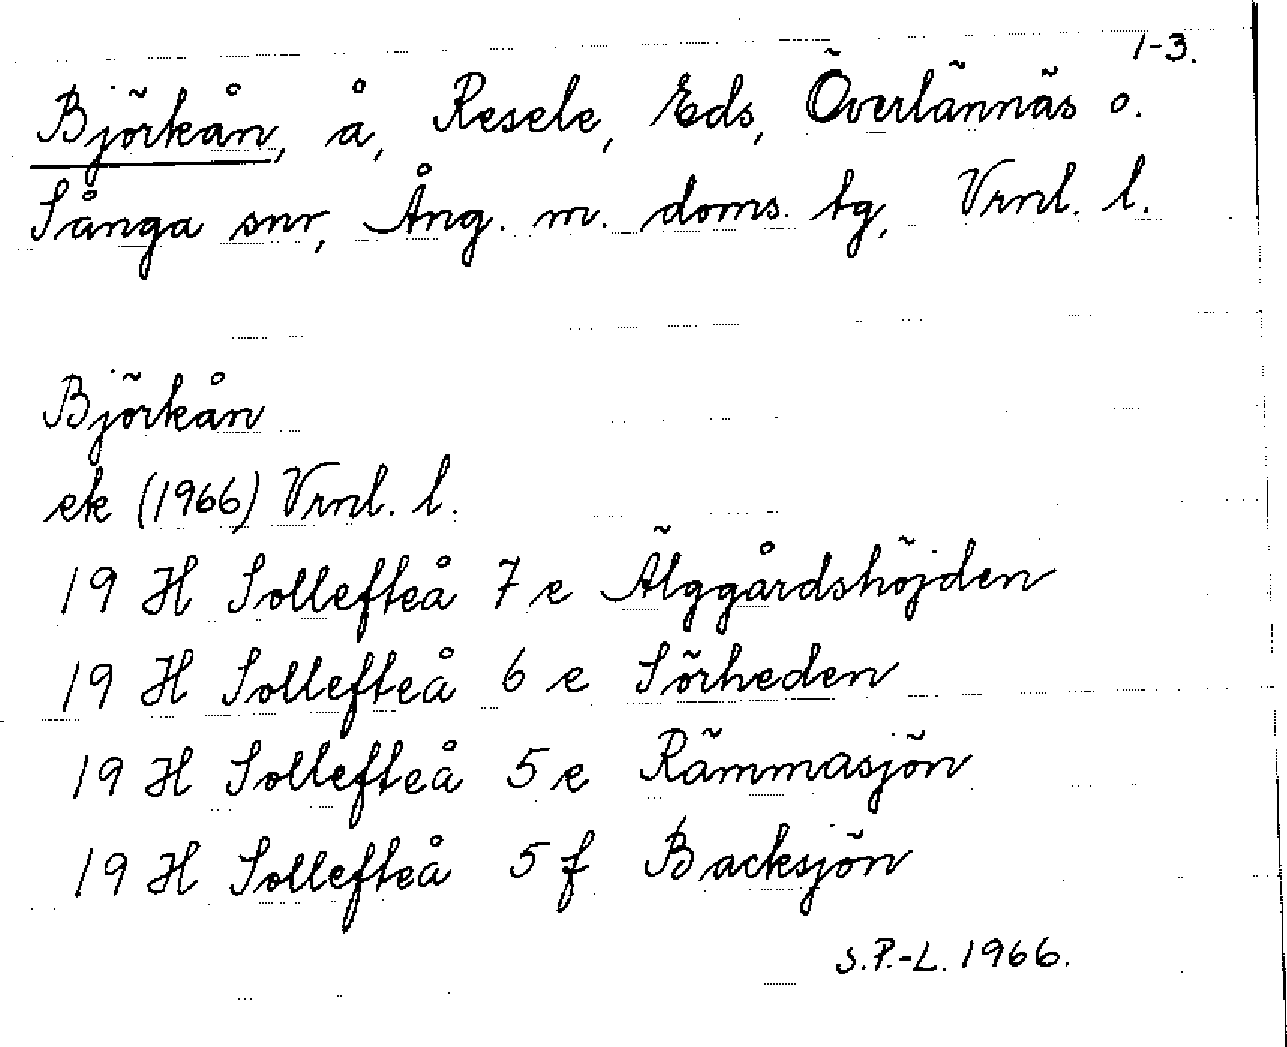 1-3.
Björkån, å, Resele, Eds, Överlännäs o.
Sånga snr, Ång. m. doms. tg, Vrnl. l.
Björkån
ek (1966) Vrnl. l.
19 H Sollefteå 7 e Älggårdshöjden
19 H Sollefteå 6 e Sörheden
19 H Sollefteå 5 e Rämmasjön
19 H Sollefteå 5 f Backsjön
S.P.-L. 1966.